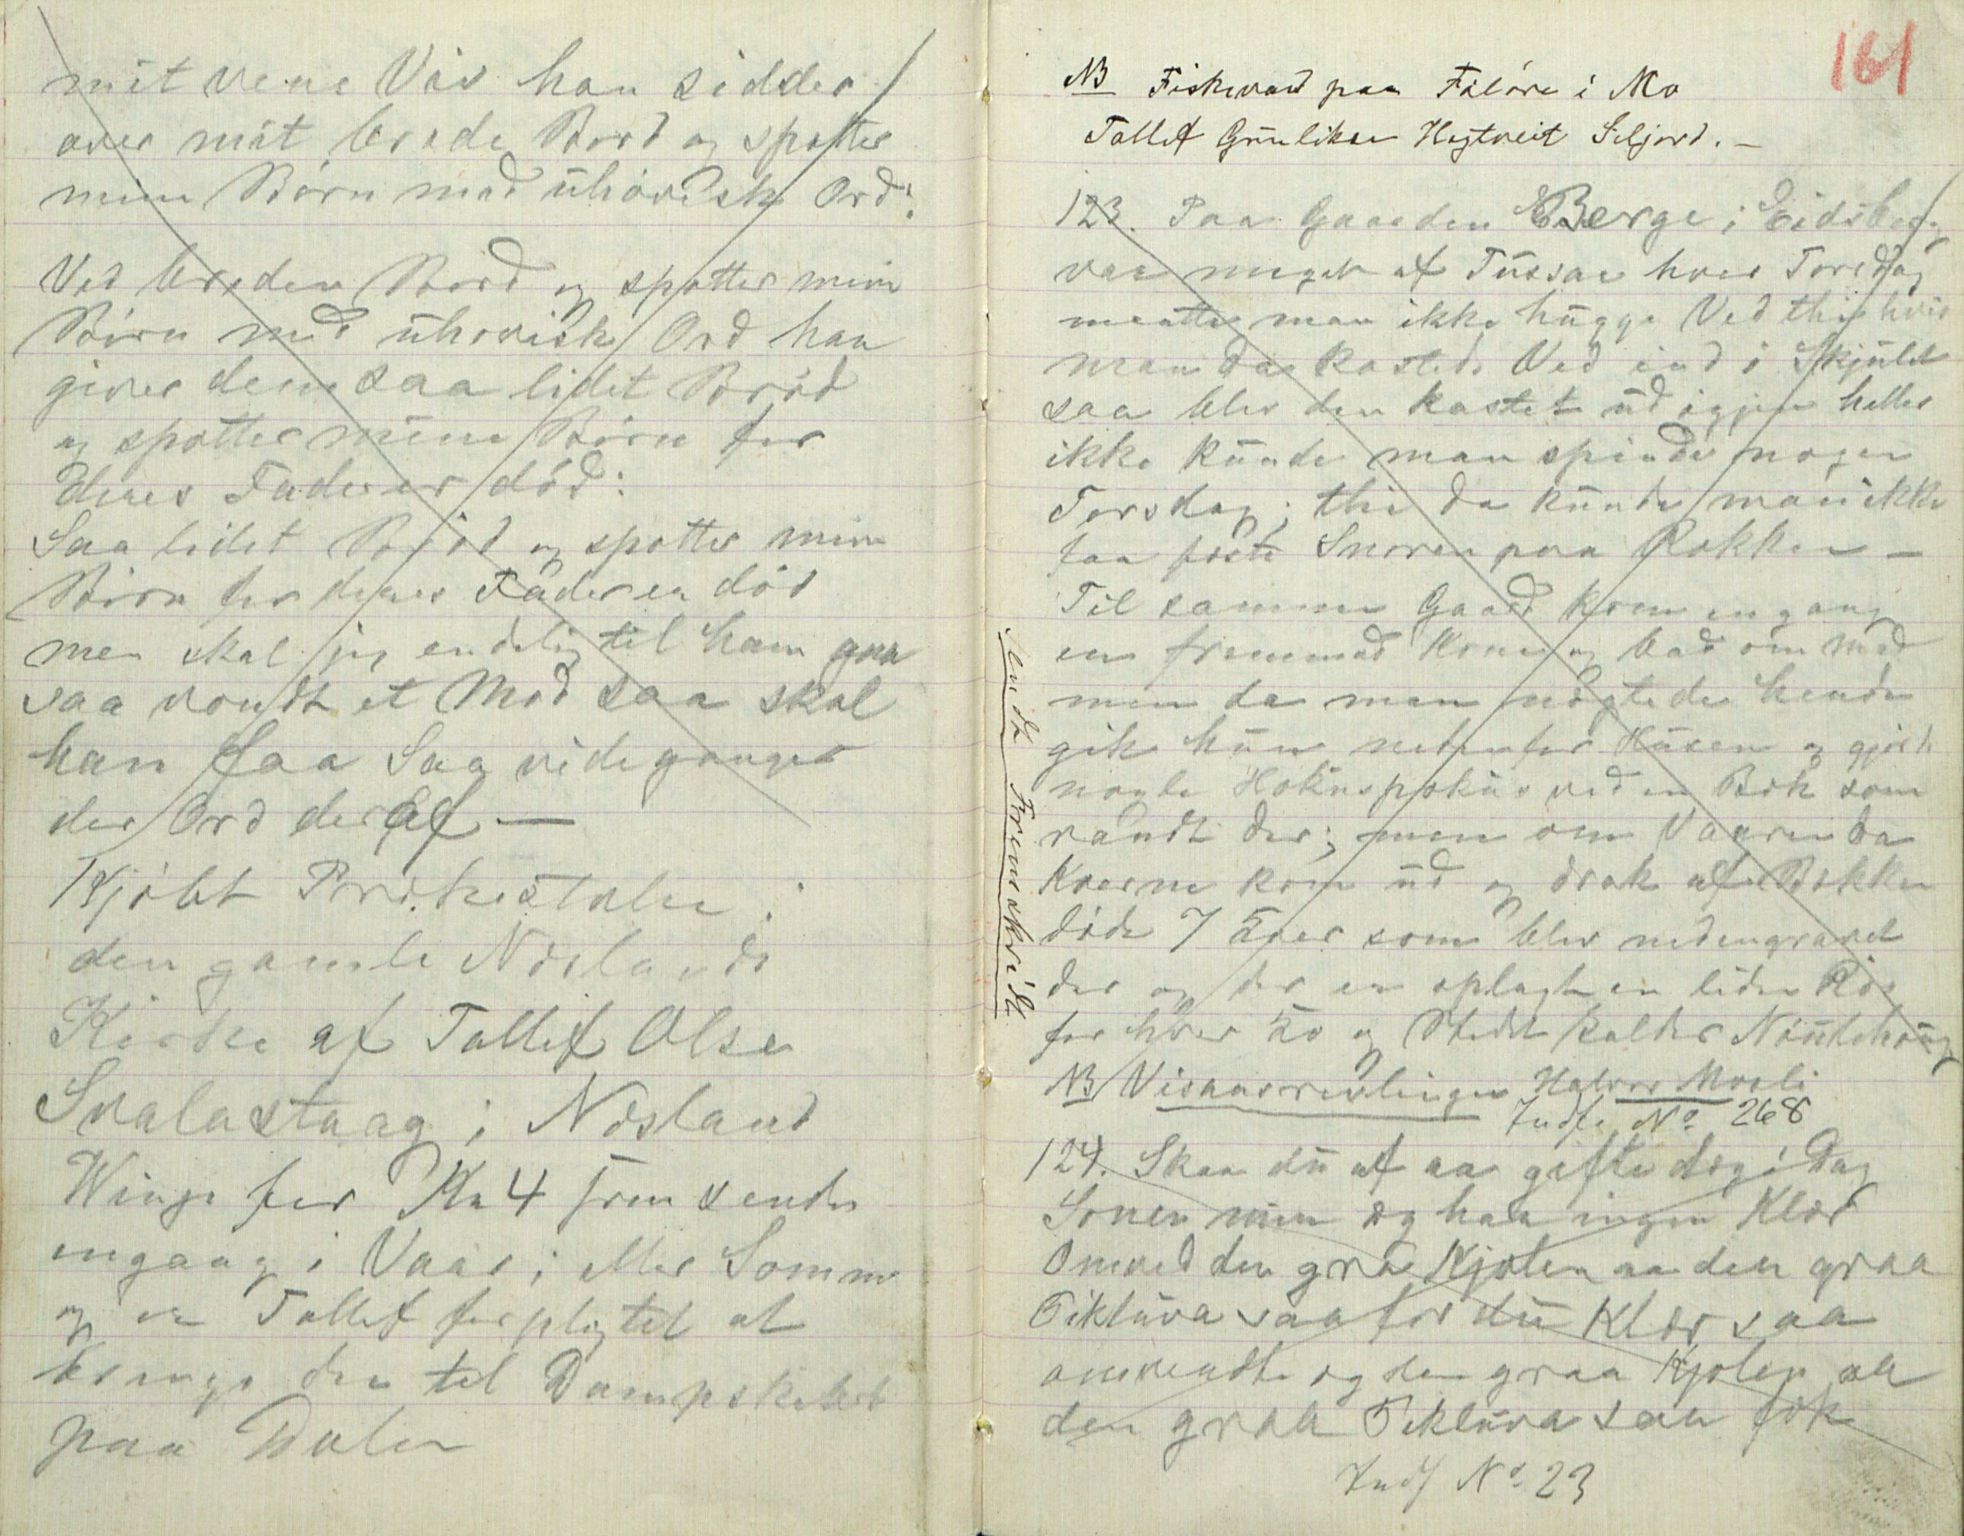 mit vene Viv han sidder
over mit brede Bord og spotter
mine Börn med uhövisk Ord:
Ved breden Bord og spotter mine
Börn med uhovisk Ord han
giver dem saa lidet Bröd
og spotter mine Börn for
deres Fader er död:
Saa lidet Bröd og spotter mine
Börn for deres Fader er död
men skal jeg endelig til ham gaa
saa vondt et Mod saa skal
han faa Saa vide ganger
der Ord der af —
Kjöbt Prækestolen i
den gamle Næslands
Kirke af Tallef Olse
Svalastaag i Næsland
Winje for Kr 4 frem sendes
engang i Vaar; eller Sommer
og er Tallef forpligtet at
bringe den til Dampskibet
paa Dalen
161
NB Fiskevand paa Falöre i Mo
Tallef Gunlikse Hegtveit Siljord. —
123. Paa Gaarden Berge i Eidsborg
var meget af Tussar hver Torsdag
maatte man ikke hugge Ved thi hvis
man da kastede Ved ind i Skjulet
saa blev den kastet ud igjen heller
ikke kunde man spinde nogen
Torsdag; thi da kunde man ikke
faa feste Snoren paa Rokken —
Til samme Gaard kom engang
en fremmed Kone og bad om Mad
men da man nægtede hende
gik hun nedenfor Husen og gjorde
nogle Hokuspokus ved en Bæk som
randt der; men om Vaaren da
Kverne kom ud og drak af Bækken
döde 7 Kuer som blev nedengravet
der og der er oplagt en liden Rös
for hver Ko og Stedet kaldes Nautehaug
NB Visaasrevlingen Halvor Moali
Indf. No. 268
124. Skaa du af aa gifte deg i Dag
Sonen min og haa ingen Klær
Omvend den graa Kjolen aa den graa
Tikluva saa fær du Klær saa
omvendte eg den graa Kjolen aa
den graa Tikluva saa fek
Indf No. 23
sendt Fremskridt